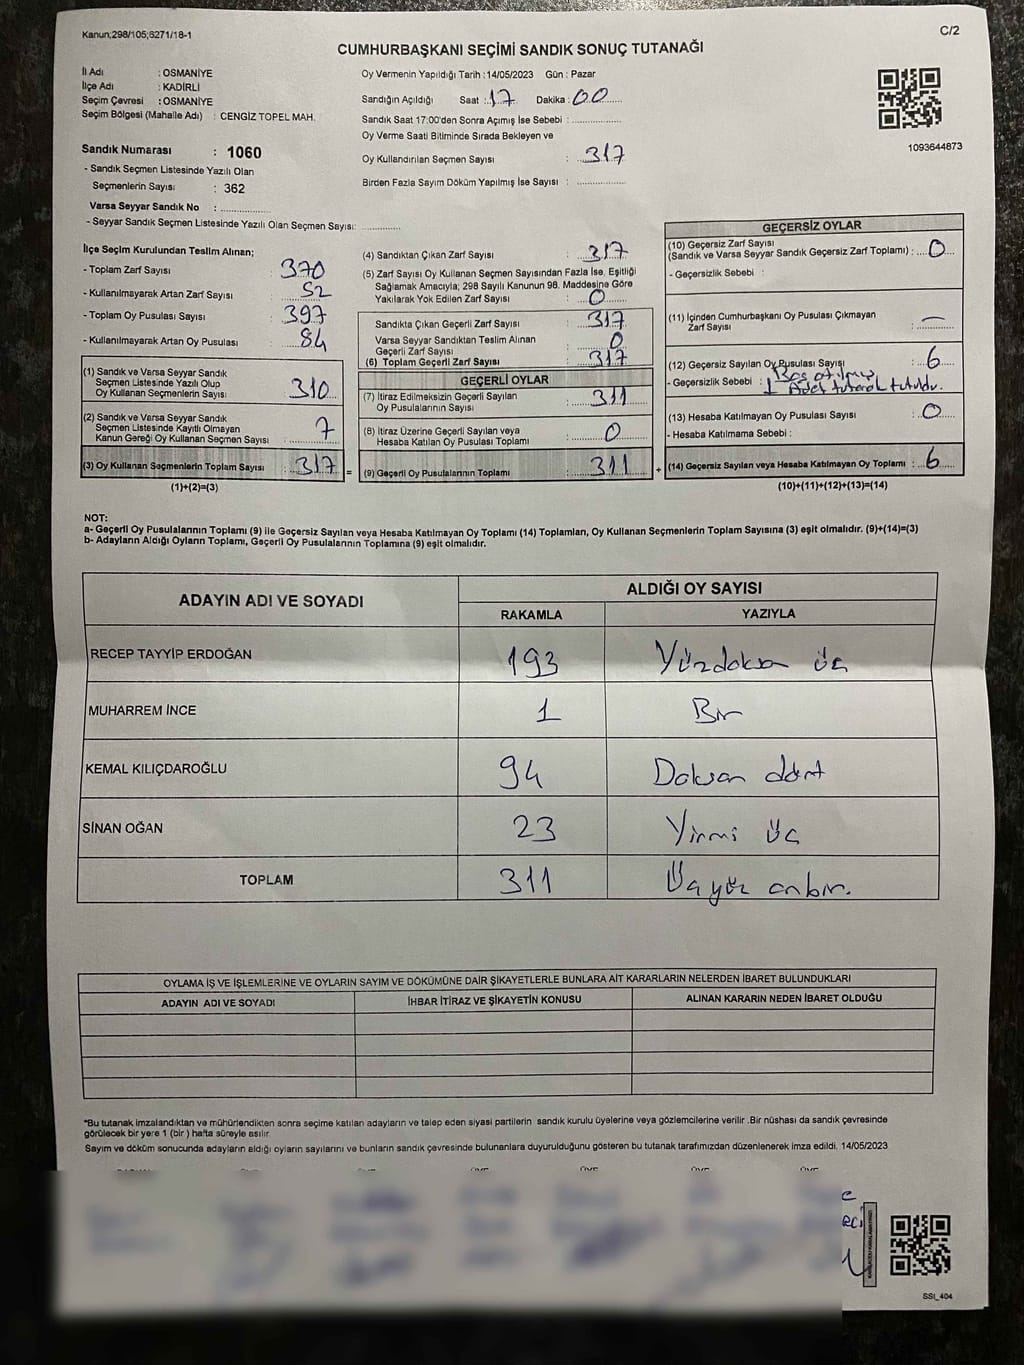 Kanun;298/105;6271/18-1
C/2
CUMHURBAŞKANI SEÇİMİ SANDIK SONUÇ TUTANAĞI
İl Adı : OSMANİYE
İlçe Adı : KADİRLİ
Seçim Çevresi : OSMANİYE
Seçim Bölgesi (Mahalle Adı) : CENGİZ TOPEL MAH.
Oy Vermenin Yapıldığı Tarih :14/05/2023 Gün : Pazar
Sandığın Açıldığı Saat :17 Dakika : 00
Sandık Saat 17:00'den Sonra Açımış İse Sebebi :
Oy Verme Saati Bitiminde Sırada Bekleyen ve
Oy Kullandırılan Seçmen Sayısı : 317
Birden Fazla Sayım Döküm Yapılmış İse Sayısı :
1093644873
Sandık Numarası : 1060
- Sandık Seçmen Listesinde Yazılı Olan
Seçmenlerin Sayısı : 362
Varsa Seyyar Sandık No :
- Seyyar Sandık Seçmen Listesinde Yazılı Olan Seçmen Sayısı:
İlçe Seçim Kurulundan Teslim Alınan;
- Toplam Zarf Sayısı : 370
- Kullanılmayarak Artan Zarf Sayısı : 52
- Toplam Oy Pusulası Sayısı : 397
- Kullanılmayarak Artan Oy Pusulası : 84
(1) Sandık ve Varsa Seyyar Sandık
Seçmen Listesinde Yazılı Olup
Oy Kullanan Seçmenlerin Sayısı : 310
(2) Sandık ve Varsa Seyyar Sandık
Seçmen Listesinde Kayıtlı Olmayan
Kanun Gereği Oy Kullanan Seçmen Sayısı : 7
(3) Oy Kullanan Seçmenlerin Toplam Sayısı : 317 =
(1)+(2)=(3)
(4) Sandıktan Çıkan Zarf Sayısı : 317
(5) Zarf Sayısı Oy Kullanan Seçmen Sayısından Fazla İse, Eşitliği
Sağlamak Amacıyla; 298 Sayılı Kanunun 98. Maddesine Göre
Yakılarak Yok Edilen Zarf Sayısı : 0
Sandıkta Çıkan Geçerli Zarf Sayısı : 317
Varsa Seyyar Sandıktan Teslim Alınan
Geçerli Zarf Sayısı : 0
(6) Toplam Geçerli Zarf Sayısı : 317
GEÇERLİ OYLAR
(7) İtiraz Edilmeksizin Geçerli Sayılan
Oy Pusulalarının Sayısı : 311
(8) İtiraz Üzerine Geçerli Sayılan veya
Hesaba Katılan Oy Pusulaları Toplamı : 0
(9) Geçerli Oy Pusulalarının Toplamı : 311 +
GEÇERSİZ OYLAR
(10) Geçersiz Zarf Sayısı
(Sandık ve Varsa Seyyar Sandık Geçersiz Zarf Toplamı) : 0
- Geçersizlik Sebebi :
(11) İçinden Cumhurbaşkanı Oy Pusulası Çıkmayan
Zarf Sayısı : —
(12) Geçersiz Sayılan Oy Pusulası Sayısı : 6
Boş atılmış
- Geçersizlik Sebebi : 1 Adet tutarak tutuldu.
(13) Hesaba Katılmayan Oy Pusulası Sayısı : 0
- Hesaba Katılmama Sebebi :
(14) Geçersiz Sayılan veya Hesaba Katılmayan Oy Toplamı : 6
(10)+(11)+(12)+(13)=(14)
NOT:
a- Geçerli Oy Pusulalarının Toplamı (9) ile Geçersiz Sayılan veya Hesaba Katılmayan Oy Toplamı (14) Toplamları, Oy Kullanan Seçmenlerin Toplam Sayısına (3) eşit olmalıdır. (9)+(14)=(3)
b- Adayların Aldığı Oyların Toplamı, Geçerli Oy Pusulalarının Toplamına (9) eşit olmalıdır.
ADAYIN ADI VE SOYADI
ALDIĞI OY SAYISI
RAKAMLA YAZIYLA
RECEP TAYYİP ERDOĞAN 193 Yüzdoksan üç
MUHARREM İNCE 1 Bir
KEMAL KILIÇDAROĞLU 94 Doksan dört
SİNAN OĞAN 23 Yirmi üç
TOPLAM 311 Üçyüz onbir.
OYLAMA İŞ VE İŞLEMLERİNE VE OYLARIN SAYIM VE DÖKÜMÜNE DAİR ŞİKAYETLERLE BUNLARA AİT KARARLARIN NELERDEN İBARET BULUNDUKLARI
ADAYIN ADI VE SOYADI İHBAR İTİRAZ VE ŞİKAYETİN KONUSU ALINAN KARARIN NEDEN İBARET OLDUĞU
*Bu tutanak imzalandıktan ve mühürlendikten sonra seçime katılan adayların ve talep eden siyasi partilerin sandık kurulu üyelerine veya gözlemcilerine verilir .Bir nüshası da sandık çevresinde
görülecek bir yere 1 (bir ) hafta süreyle asılır.
Sayım ve döküm sonucunda adayların aldığı oyların sayılarını ve bunların sandık çevresinde bulunanlara duyurulduğunu gösteren bu tutanak tarafımızdan düzenlenerek imza edildi. 14/05/2023
SSI_404